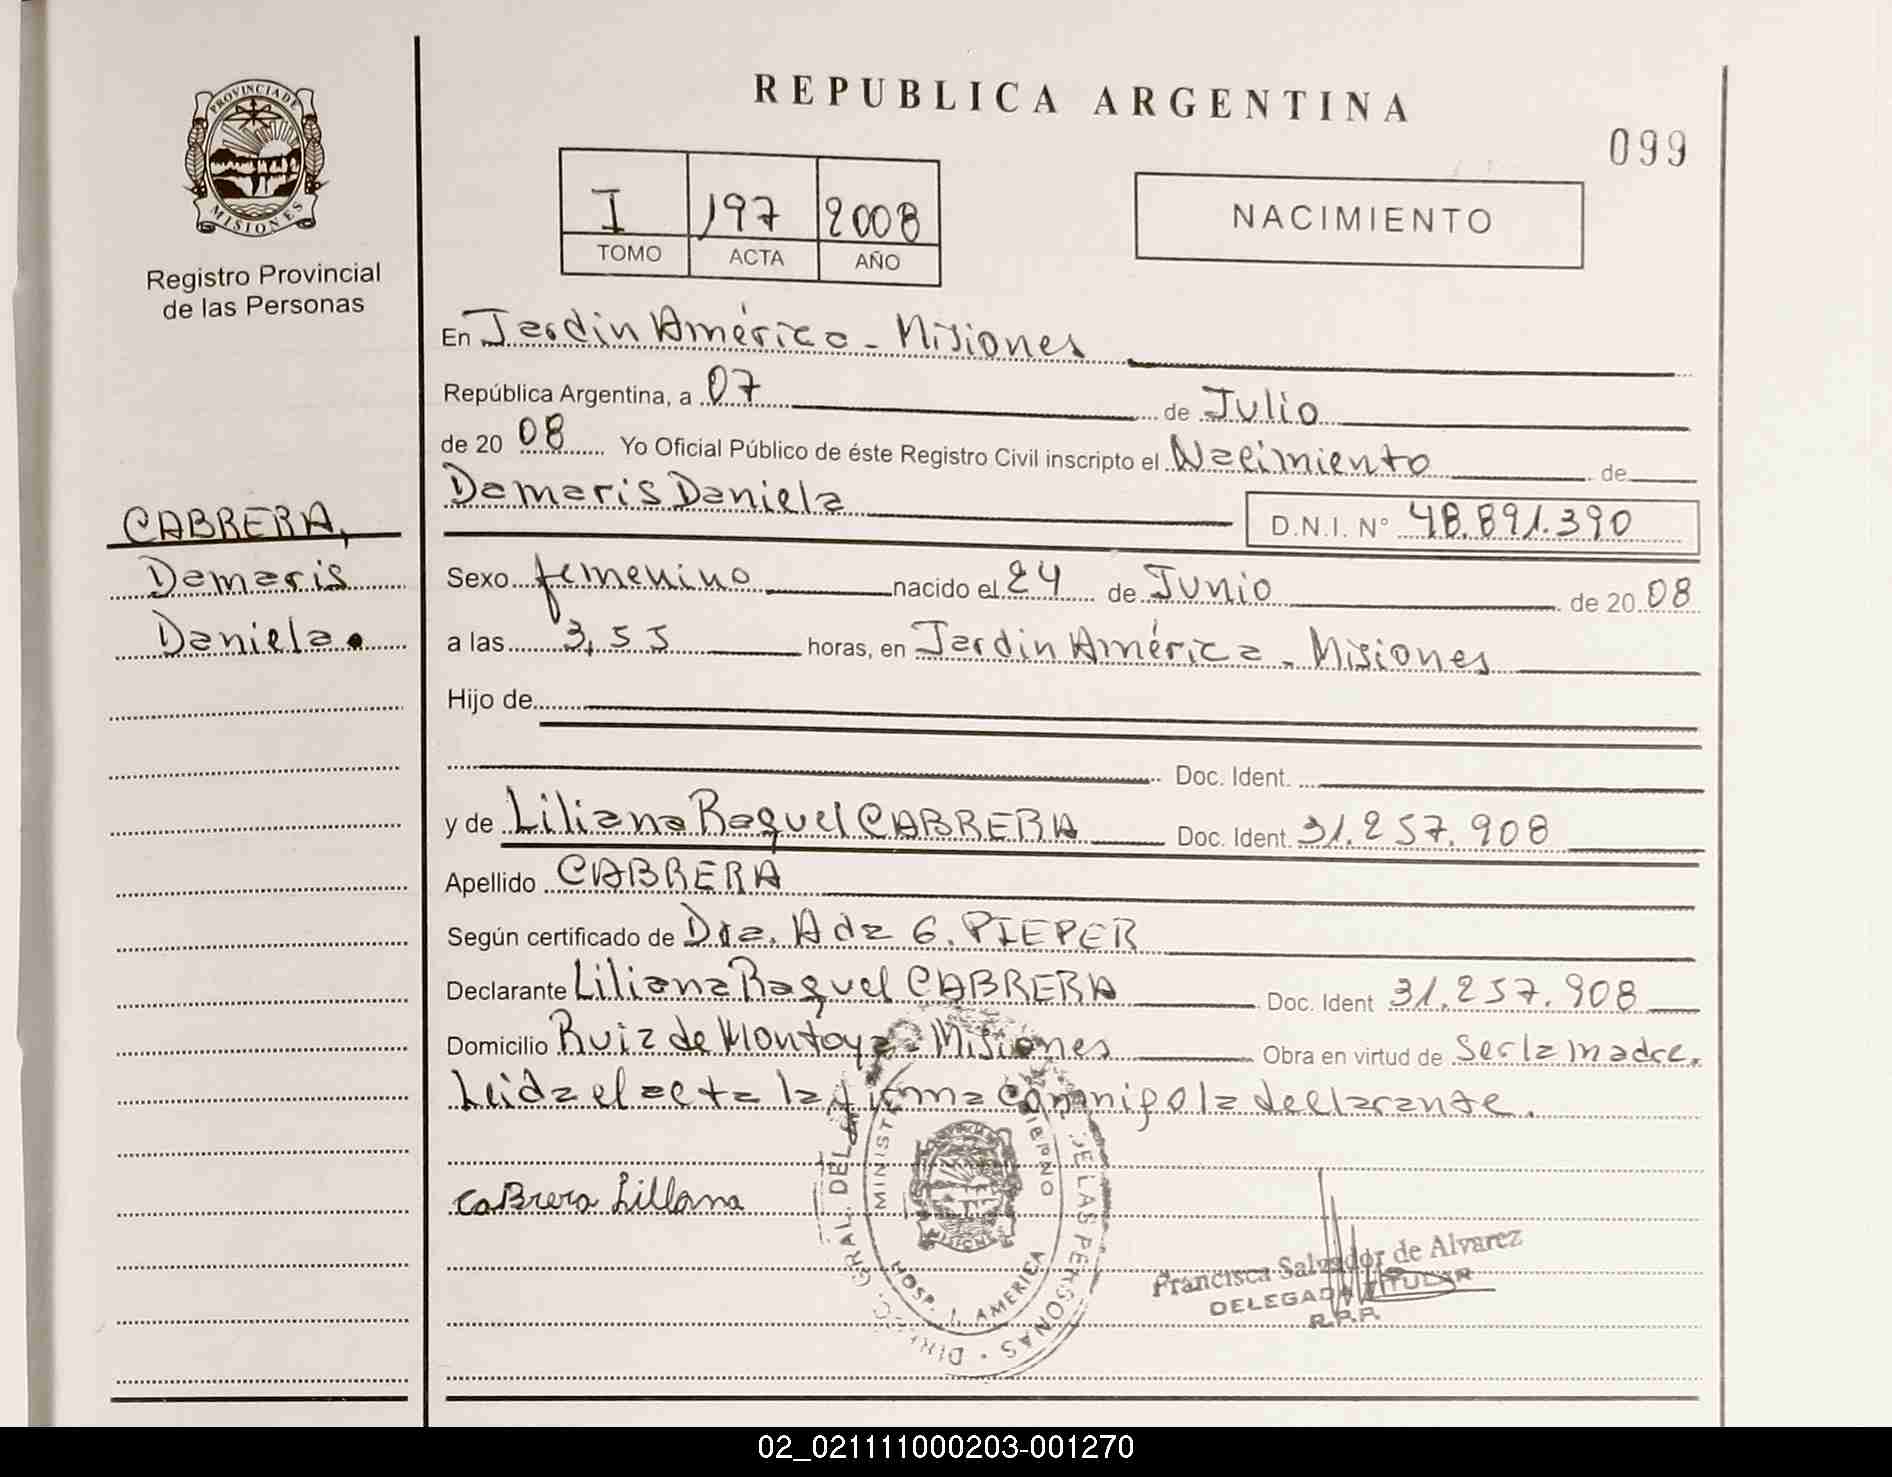 REPUBLICA ARGENTINA
099
PROVINCIA DE
MISIONES
Registro Provincial
de las Personas
I 197 2008
TOMO ACTA AÑO
NACIMIENTO
En Jardin América - Misiones
República Argentina, a 07 de Julio
de 20 08 Yo Oficial Público de éste Registro Civil inscripto el Nacimiento de
Damaris Daniela D.N.I. N° 48.891.390
CABRERA,
Damaris
Daniela.
Sexo femenino nacido el 24 de Junio de 20 08
a las 3,55 horas, en Jardin América - Misiones
Hijo de
Doc. Ident.
y de Liliana Raquel CABRERA Doc. Ident. 31.257.908
Apellido CABRERA
Según certificado de Dra. Ada G. PIEPER
Declarante Liliana Raquel CABRERA Doc. Ident 31.257.908
Domicilio Ruiz de Montoya - Misiones Obra en virtud de Ser la madre.
Leida el acta la firma conmigo la declarante.
Cabrera Liliana
DIRECC. GRAL. DE LAS PERSONAS
MISIONES
HOSP. J. AMERICA
Francisca Salvador de Alvarez
DELEGADA TITULAR
R.P.P.
02_021111000203-001270